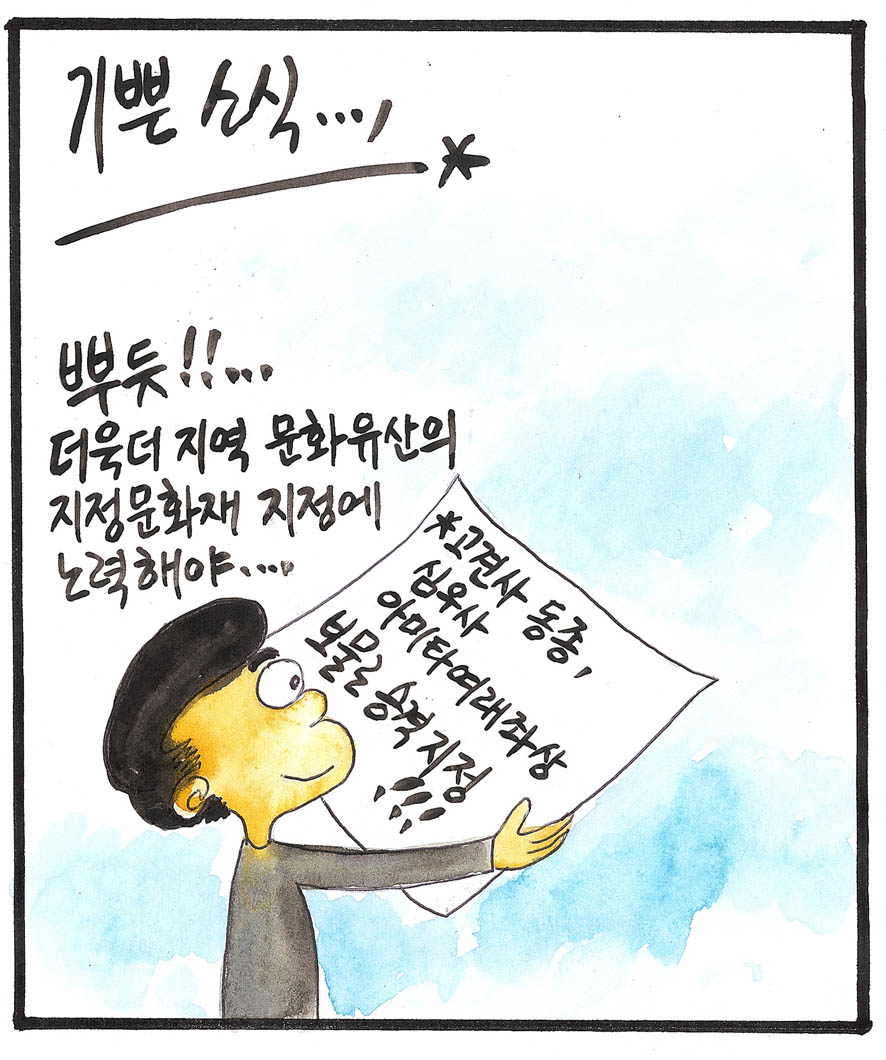 기쁜 소식...,
*
뿌듯!!...
더욱더 지역 문화유산의
지정문화재 지정에
노력해야....
*고견사 동종,
심우사
아미타여래좌상
보물로 승격 지정
!!!